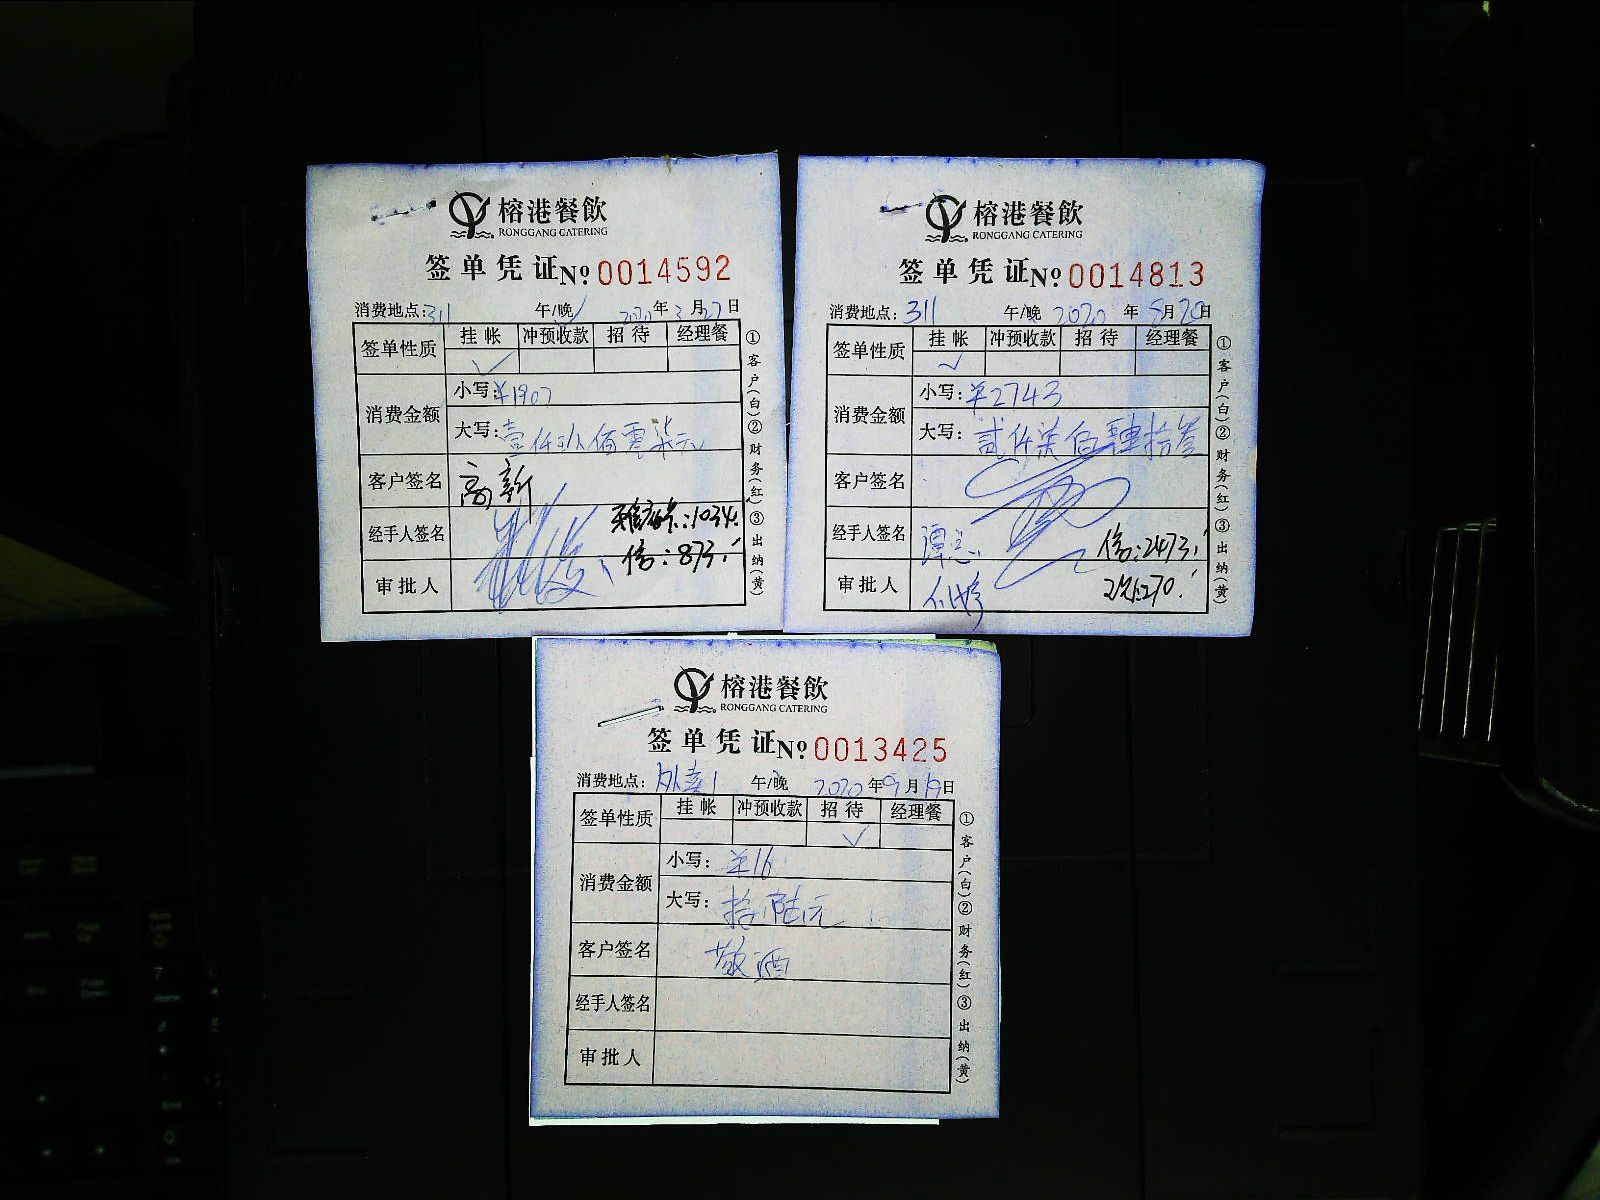 榕港餐飲
RONGGANG CATERING
签单凭证№0014592
消费地点:311 午/晚✓ 2020年3月27日
签单性质 挂帐 冲预收款 招待 经理餐
✓
消费金额 小写:¥1907
大写:壹仟玖佰零柒元
客户签名 高新
经手人签名 :1034.
:873.
审批人
①客户(白)②财务(红)③出纳(黄)
榕港餐飲
RONGGANG CATERING
签单凭证№0014813
消费地点:311 午/晚 2020年8月20日
签单性质 挂帐 冲预收款 招待 经理餐
✓
消费金额 小写:¥2743
大写:贰仟柒佰肆拾叁
客户签名
经手人签名 :2473.
审批人 :270.
①客户(白)②财务(红)③出纳(黄)
榕港餐飲
RONGGANG CATERING
签单凭证№0013425
消费地点:外卖1 午/晚 2020年9月19日
签单性质 挂帐 冲预收款 招待 经理餐
✓
消费金额 小写:¥16
大写:拾陆元
客户签名 敬酒
经手人签名
审批人
①客户(白)②财务(红)③出纳(黄)